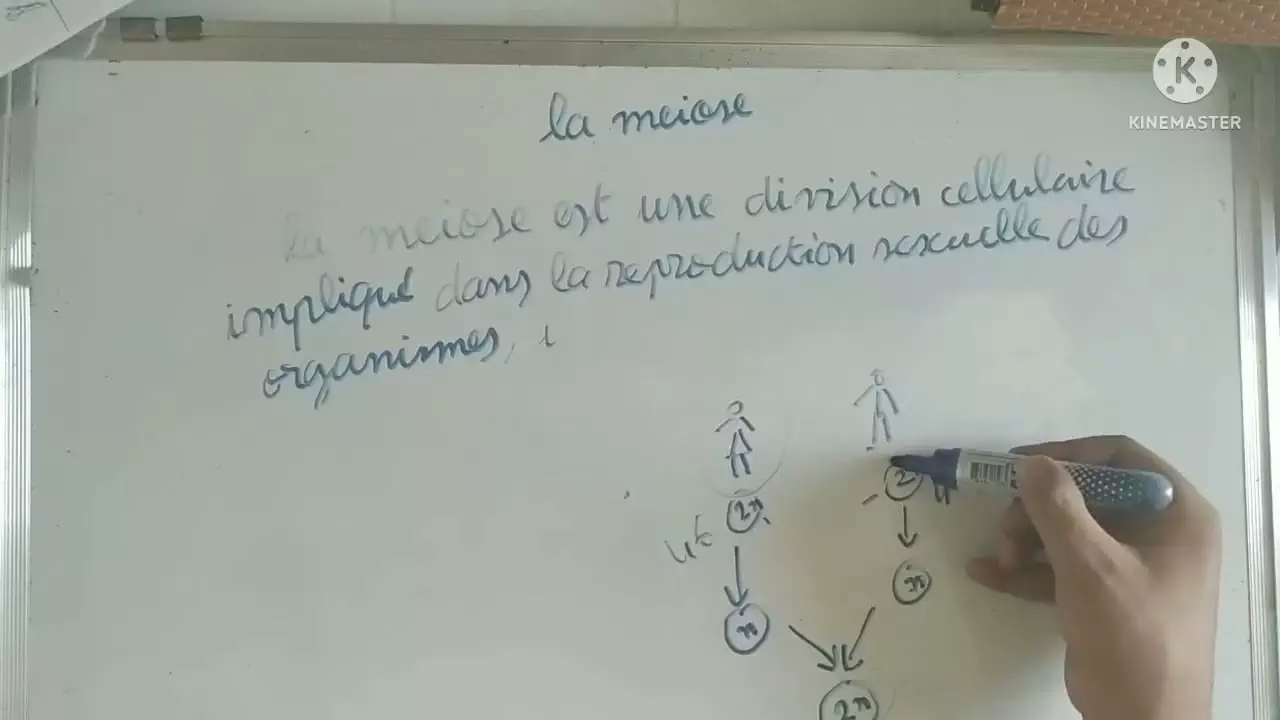 la meiose
la meiose est une division cellulaire
impliqué dans la reproduction sexuelle des
organismes,
2n
2
n
n
2n
K
KINEMASTER